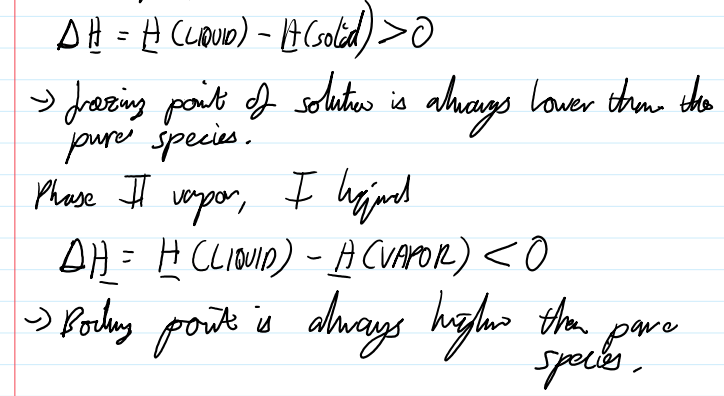 ΔH = H (LIQUID) - H (solid) > 0
→ freezing point of solution is always lower than the
pure species.
Phase II vapor, I liquid
ΔH = H (LIQUID) - H (VAPOR) < 0
→ Boiling point is always higher than pure
species.